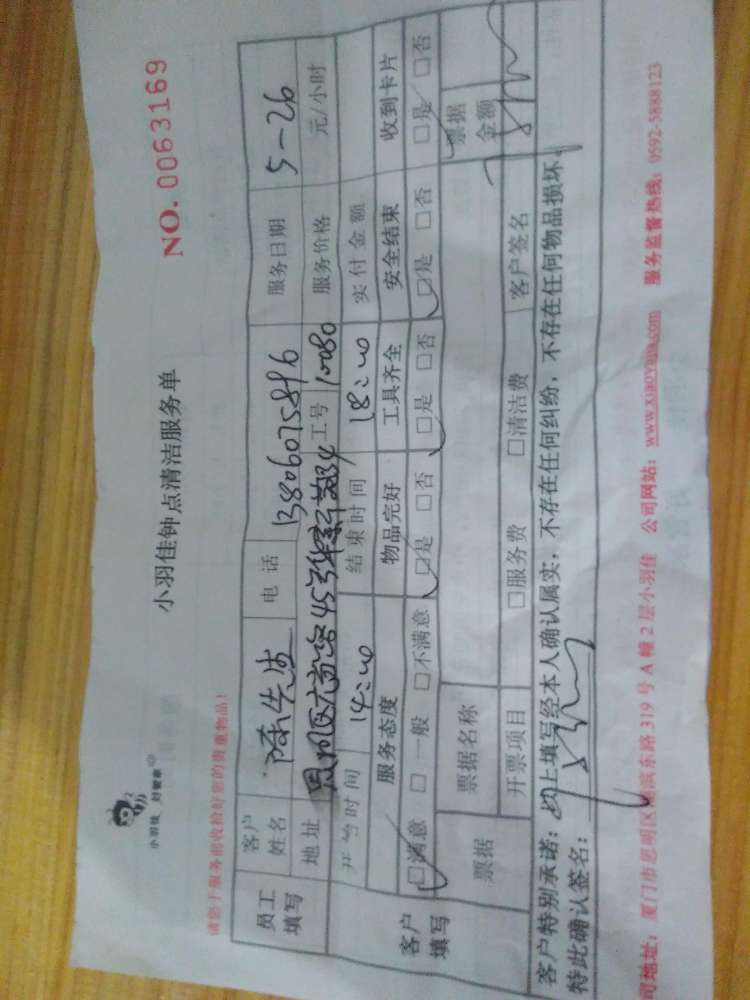 小羽佳 好管家
小羽佳钟点清洁服务单
NO. 0063169
请您于服务前收拾好您的贵重物品!
员工填写
客户姓名 陈先生 电话 13806075896 服务日期 5-26
地址 思明区 45号 工号 10080 服务价格 元/小时
开始时间 14:00 结束时间 18:00 实付金额
客户填写
服务态度 物品完好 工具齐全 安全结束 收到卡片
□满意 □一般 □不满意 □是 □否 □是 □否 □是 □否 □是 □否
票据 票据名称 票据金额
开票项目 □服务费 □清洁费 客户签名
客户特别承诺:以上填写经本人确认属实,不存在任何纠纷,不存在任何物品损坏。
特此确认签名:
司地址:厦门市思明区湖滨东路319号A幢2层小羽佳 公司网站:www.xiaoyujia.com 服务监督热线:0592-5888123